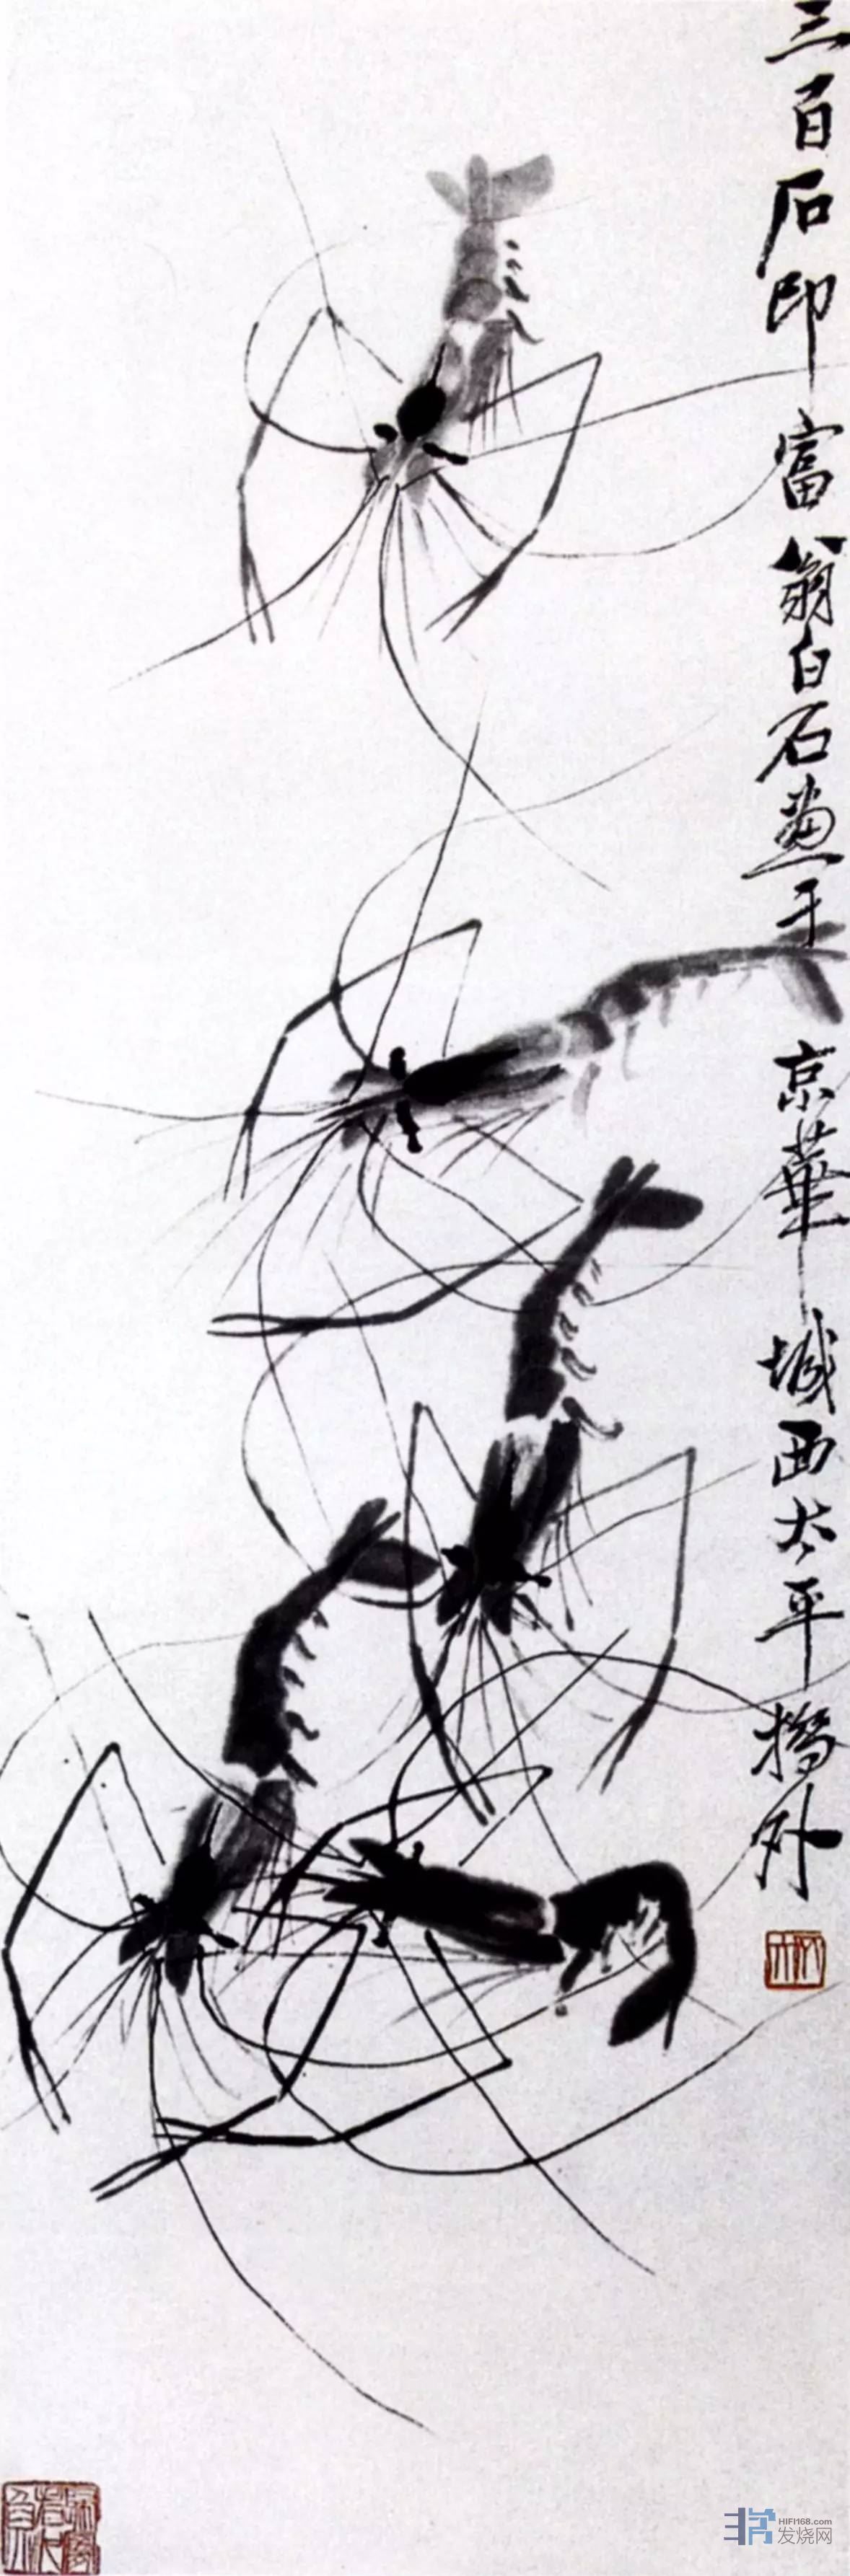 三百石印富翁白石畫于京華城西太平橋外
HIFI168.com
发烧网